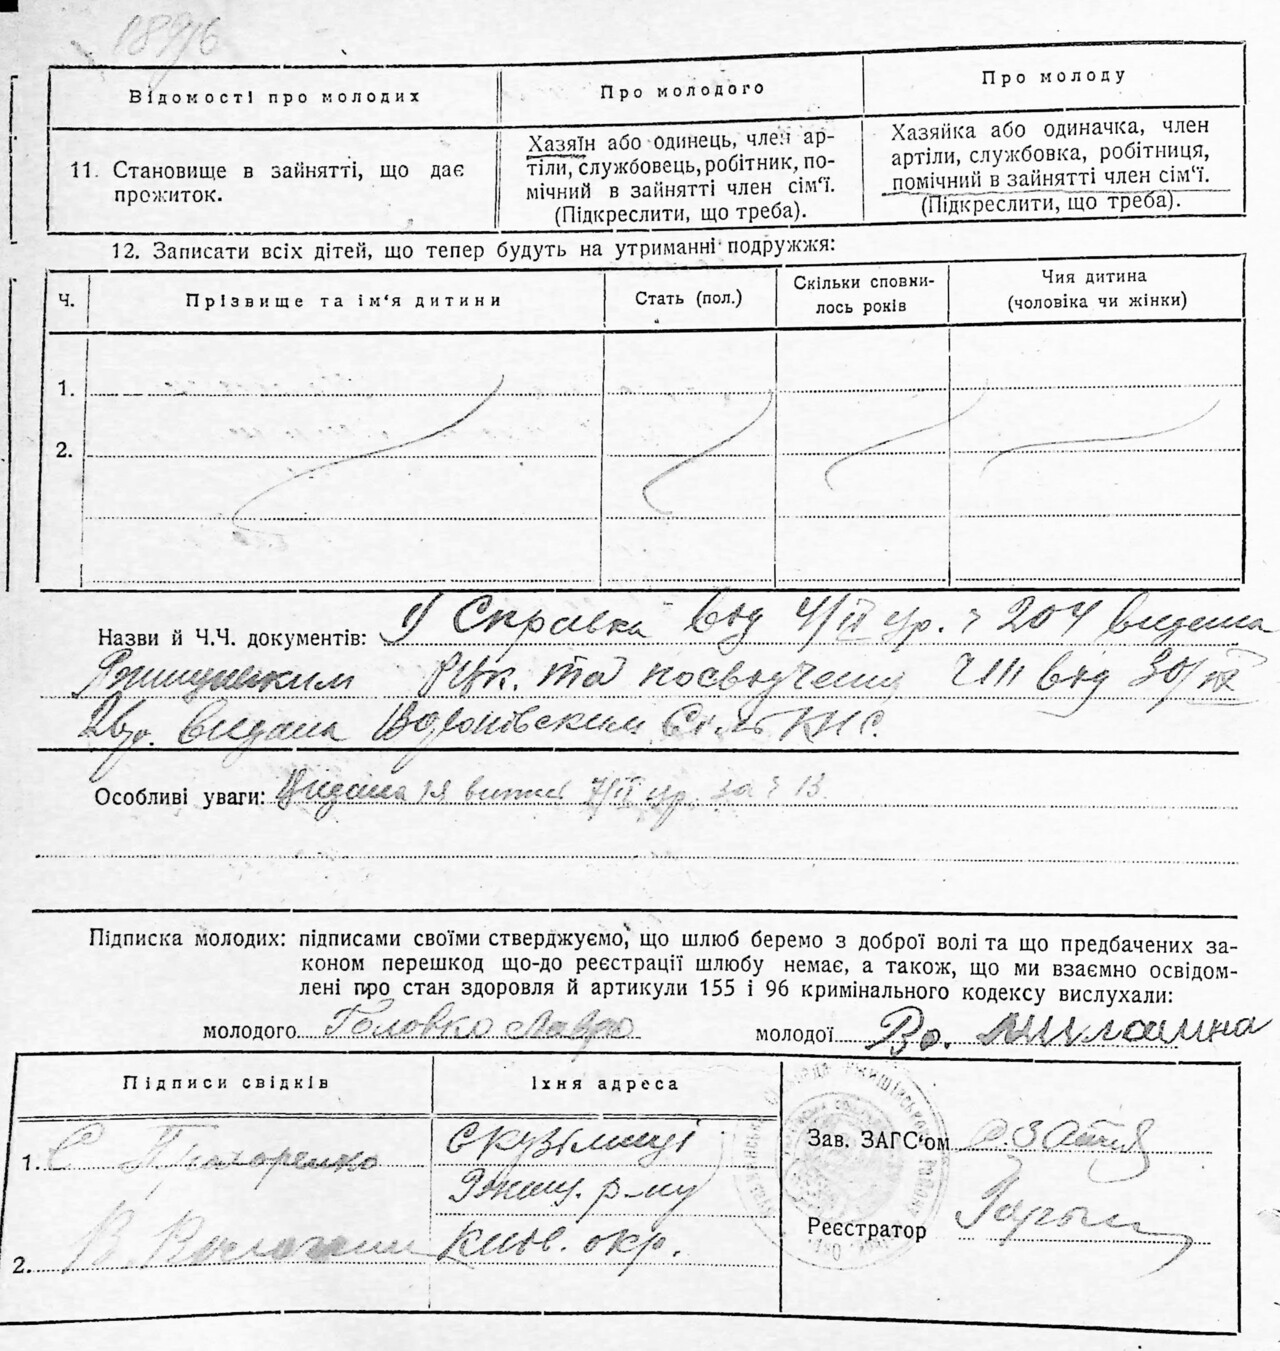 189/6
Відомості про молодих
Про молодого
Про молоду
11. Становище в зайнятті, що дає прожиток.
Хазяїн або одинець, член ар-
тіли, службовець, робітник, по-
мічний в зайнятті член сім'ї.
(Підкреслити, що треба).
Хазяйка або одиначка, член
артіли, службовка, робітниця,
помічний в зайнятті член сім'ї.
(Підкреслити, що треба).
12. Записати всіх дітей, що тепер будуть на утриманні подружжя:
Ч.
Прізвище та ім'я дитини
Стать (пол.)
Скільки сповни-
лось років
Чия дитина
(чоловіка чи жінки)
1.
2.
Назви й Ч.Ч. документів: 1) Справка від 4/II ц/р. ч 204 видана
РИК. та посвідчення від 30/
видана Сіль КНС.
Особливі уваги: Видана 7/II ц.р. за ч 13.
Підписка молодих: підписами своїми стверджуємо, що шлюб беремо з доброї волі та що предбачених за-
коном перешкод що-до реєстрації шлюбу немає, а також, що ми взаємно освідом-
лені про стан здоровля й артикули 155 і 96 кримінального кодексу вислухали:
молодого Головко молодої
Підписи свідків
Їхня адреса
1. С Прохоренко
с Кузьминці
Ржищ. р-ну
2. В.
Київ. окр.
Зав. ЗАГС'ом
Реєстратор